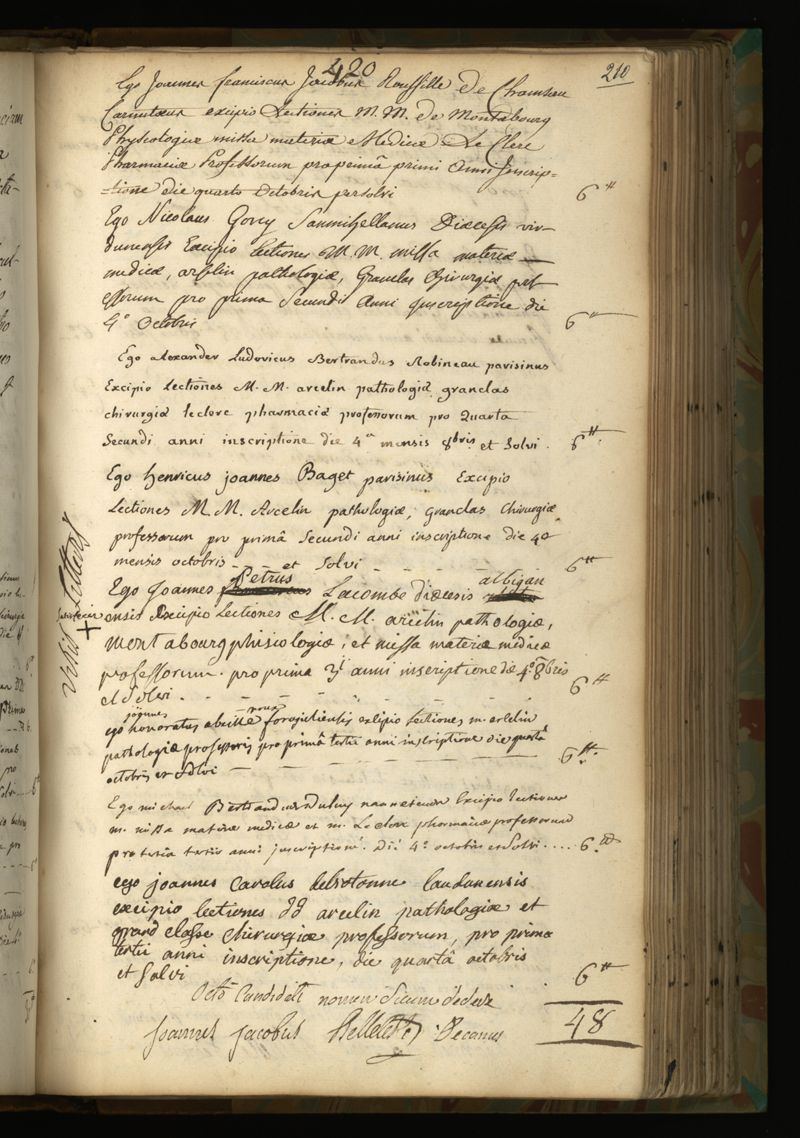 420
210
Ego Joannes franciscus Jacobus Roussille De Chamseru
Carnutaeus excipio Lectiones M. M. de Montabourg
Physiologiae missa materiae Medicae Le Clerc
Pharmaciae Professorum pro primâ primi Anni Inscrip=
=tione die quarto Octobris persolvi 6 ₶
Ego Nicolaus Gorcy Sanmihellanus Diœcesis vir-
dunensis Excipio Lectiones M. M. missa materiæ
medicæ, arcelin pathologiæ, Granclas Chirurgiæ prof
essorum pro prima Secundi Anni Inscriptione die
4° Octobris 6 ₶
Ego alexander Ludovicus Bertrandus Robineau parisinus
Excipio Lectiones M. M. arcelin pathologiæ granclas
chirurgiæ leclerc pharmaciæ professorum pro Quarta
Secundi anni inscriptione die 4a mensis 8bris et Solvi. 6 ₶
Ego henricus joannes Baget parisinus Excipio
Lectiones M. M. Arcelin pathologiæ, Granclas Chirurgiæ
professorum pro primâ Secundi anni inscriptione die 4a
mensis octobris et Solvi 6 ₶
Petrus albigan
Ego Joannes Lacombe diœcesis
ensis Excipio Lectiones M. M. arcelin pathologiæ,
Montabourg phisiologiæ, et missa materiæ medicæ
professorum. pro prima 2i anni inscriptione die 4a 8bris
et Solvi 6 ₶
joannes roux
ego honoratus abeille forojuliensis excipio Lectiones m. arcelin
pathologiæ professoris pro primâ tertii anni inscriptione die quartâ
octobris et solvi 6 ₶
Ego michael Bertrandus Dulny nanneteus Excipio lectiones
m. missa materiæ medicæ et m. Leclerc pharmaciæ professorum
pro tertia tertii anni inscriptione. Die 4a octobris et Solvi.... 6 ₶
ego joannes carolus debrotonne laudunensis
excipio lectiones DD arcelin pathologiæ et
grand classe chirurgiæ professorum, pro prima
tertii anni inscriptione, die quartâ octobris
et Solvi 6 ₶
Octo Candidati nomen Suum dedere 48
Joannes Jacobus Belleteste Decanus